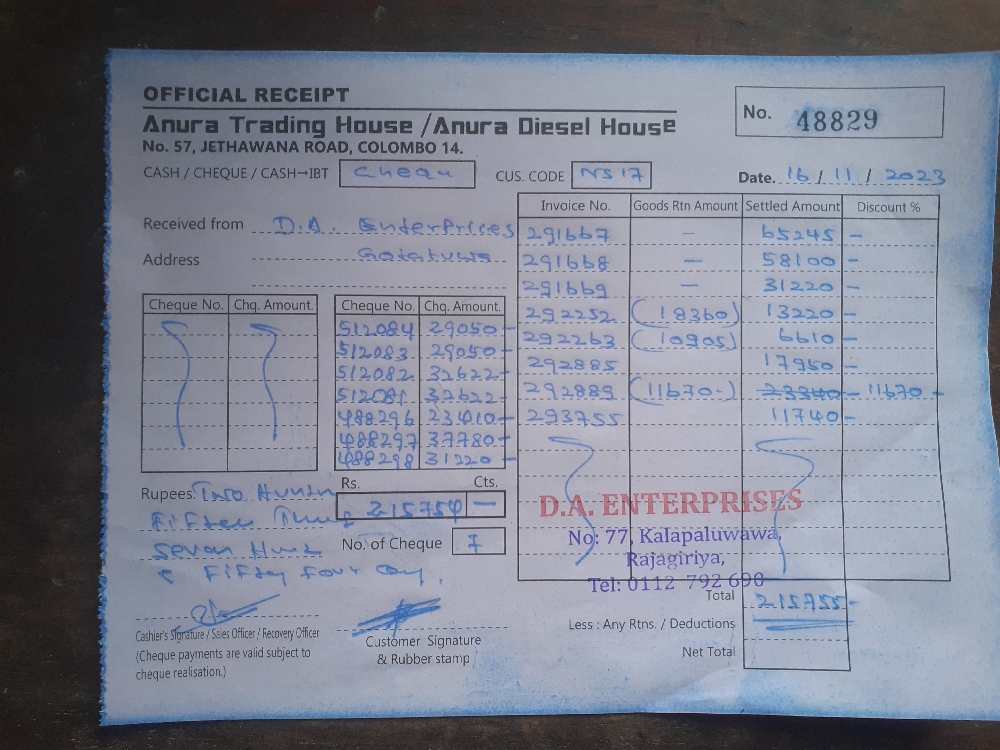 OFFICIAL RECEIPT
Anura Trading House / Anura Diesel House
No. 57, JETHAWANA ROAD, COLOMBO 14.
No. 48829
CASH / CHEQUE / CASH→IBT Chequ CUS. CODE NS 17 Date. 16 / 11 / 2023
Received from D.A. Enterprices
Address
Invoice No. Goods Rtn Amount Settled Amount Discount %
291667 — 65245 -
291668 — 58100 -
291669 — 31220 -
292252 (18360) 13220 -
292263 (10905) 6610 -
292885 17950 -
292889 (11670-) 23340 - 11670 -
293755 11740 -
Cheque No. Chq. Amount.
Cheque No. Chq. Amount.
512084 29050 -
512083 29050 -
512082 32622 -
512081 32622 -
488296 23410 -
488297 37780 -
488298 31220 -
Rs. Cts.
215754 —
Rupees. Two
Fifteen
Seven
& Fifty four
No. of Cheque 7
D.A. ENTERPRISES
No: 77, Kalapaluwawa,
Rajagiriya,
Tel: 0112 792 690
Total 215755 -
Less : Any Rtns. / Deductions
Net Total
Cashier's Signature / Sales Officer / Recovery Officer
(Cheque payments are valid subject to
cheque realisation.)
Customer Signature
& Rubber stamp